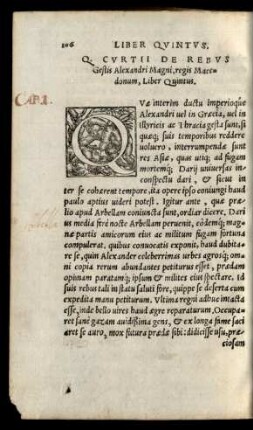 106 LIBER QVINTVS.
Q. CVRTII DE REBVS
Gestis Alexandri Magni, regis Mace-
donum, Liber Quintus.
CAP. I.
QVæ interim ductu imperioque
Alexandri uel in Græcia, uel in
Illyrieis ac Thracia gesta sunt, si
quæq; suis temporibus reddere
uoluero, interrumpendæ sunt
res Asiæ, quas utiq; ad fugam
mortemq; Darij uniuersas in
conspectu dari, & sicut in
ter se cohærent tempore, ita opere ipso coniungi haud
paulo aptius uideri potest. Igitur ante, quæ præ-
lio apud Arbellam coniuncta sunt, ordiar dicere. Dari
us media ferè nocte Arbellam peruenit, eodemq; magnæ
partis amicorum eius ac militum fugam fortuna
compulerat, quibus conuocatis exponit, haud dubita-
re se, quin Alexander celeberrimas urbes agrosq; om-
ni copia rerum abundantes petiturus esset, prædam
opinam paratamq; ipsum & milites eius spectare. id
suis rebus tali in statu saluti fore, quippe se deserta cum
expedita manu petiturum. Vltima regni adhuc intacta
esse, inde bello uires haud ægre reparaturum. Occupa-
ret sanè gazam auidissima gens, & ex longa fame saci
aret se auro, mox futura prædæ sibi: didicisse usu, præ-
ciosam